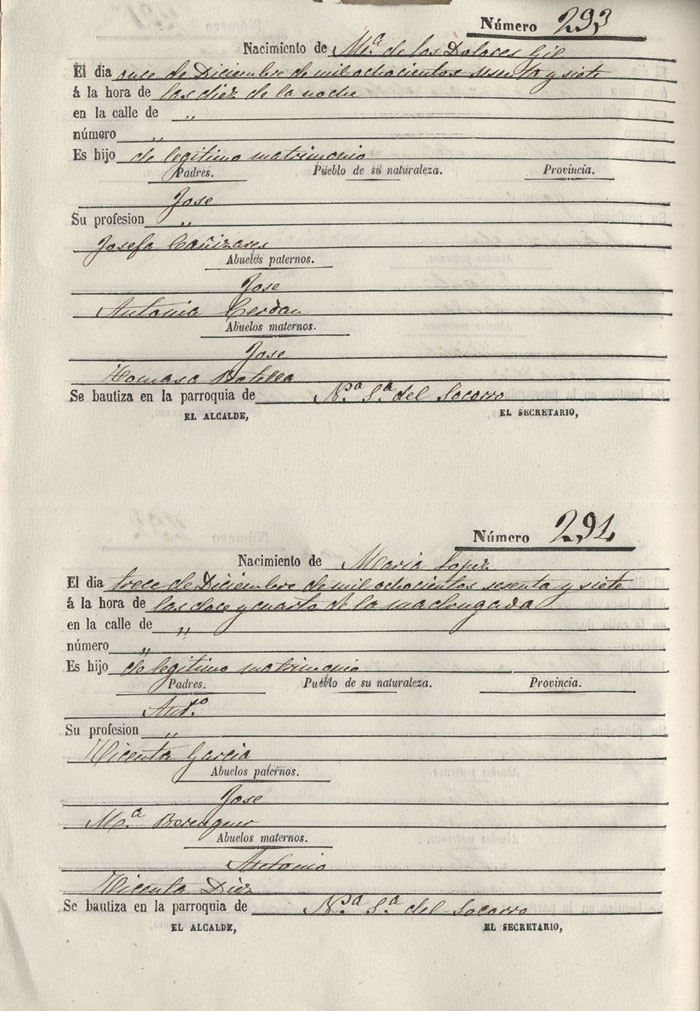 Número 293
Nacimiento de Mª de los Dolores Gil
El dia once de Diciembre de mil ochocientos sesenta y siete
á la hora de las diez de la noche
en la calle de „
número „
Es hijo de legitimo matrimonio
Padres. Pueblo de su naturaleza. Provincia.
Jose
Su profesion „
Josefa Cañizares
Abuelos paternos.
Jose
Antonia Cerdan
Abuelos maternos.
Jose
Tomasa Botella
Se bautiza en la parroquia de Nª Sª del Socorro
EL ALCALDE, EL SECRETARIO,
Número 294
Nacimiento de Maria Lopez
El dia trece de Diciembre de mil ochocientos sesenta y siete
á la hora de las doce y cuarto de la madrugada
en la calle de „
número „
Es hijo de legitimo matrimonio
Padres. Pueblo de su naturaleza. Provincia.
Antº
Su profesion „
Vicenta Garcia
Abuelos paternos.
Jose
Mª Berenguer
Abuelos maternos.
Antonio
Vicenta Diez
Se bautiza en la parroquia de Nª Sª del Socorro
EL ALCALDE, EL SECRETARIO,